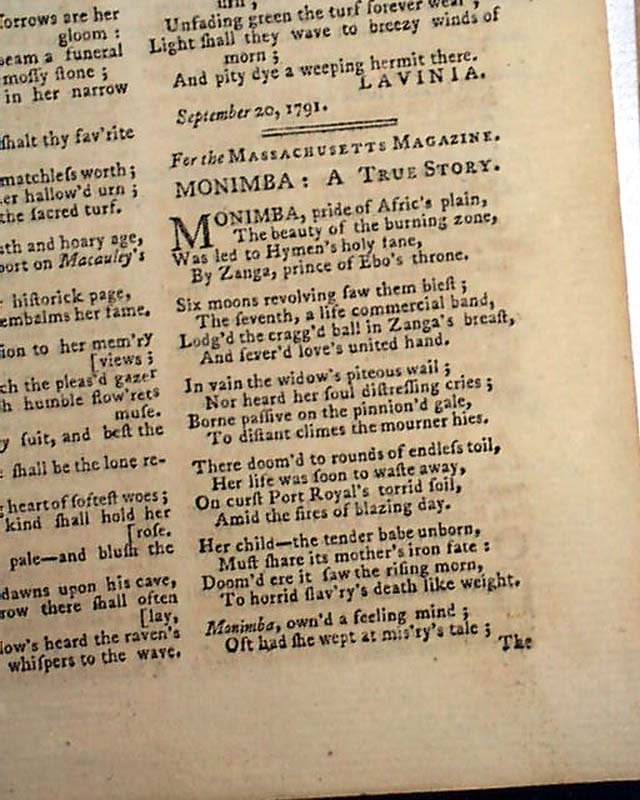 forrows are her
gloom :
beam a funeral
mossy stone ;
in her narrow
shalt thy fav'rite
matchless worth ;
er hallow'd urn ;
the sacred turf.
and hoary age,
port on Macauley's
historick page,
embalms her fame.
to her mem'ry
[views ;
the pleas'd gazer
humble flow'rets
muse.
suit, and best the
shall be the lone re-
heart of softest woes ;
kind shall hold her
[rose.
pale—and blush the
dawns upon his cave,
there shall often
[lay,
heard the raven's
whispers to the wave.
Unfading green the turf forever wear ;
Light shall they wave to breezy winds of
morn ;
And pity dye a weeping hermit there.
LAVINIA.
September 20, 1791.
For the MASSACHUSETTS MAGAZINE.
MONIMBA : A TRUE STORY.
MONIMBA, pride of Afric's plain,
The beauty of the burning zone,
Was led to Hymen's holy fane,
By Zanga, prince of Ebo's throne.
Six moons revolving saw them blest ;
The seventh, a life commercial band,
Lodg'd the cragg'd ball in Zanga's breast,
And sever'd love's united hand.
In vain the widow's piteous wail ;
Nor heard her soul distressing cries ;
Borne passive on the pinnion'd gale,
To distant climes the mourner hies.
There doom'd to rounds of endless toil,
Her life was soon to waste away,
On curst Port Royal's torrid soil,
Amid the fires of blazing day.
Her child—the tender babe unborn,
Must share its mother's iron fate :
Doom'd ere it saw the rising morn,
To horrid slav'ry's death like weight.
Monimba, own'd a feeling mind ;
Oft had she wept at mis'ry's tale ;
The